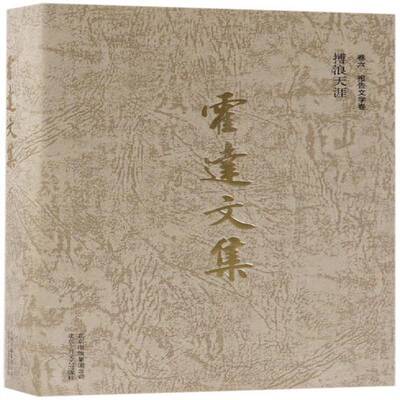 卷六 报告文学卷
搏浪天涯
霍达文集
霍達文集
北京出版集团公司
北京十月文艺出版社